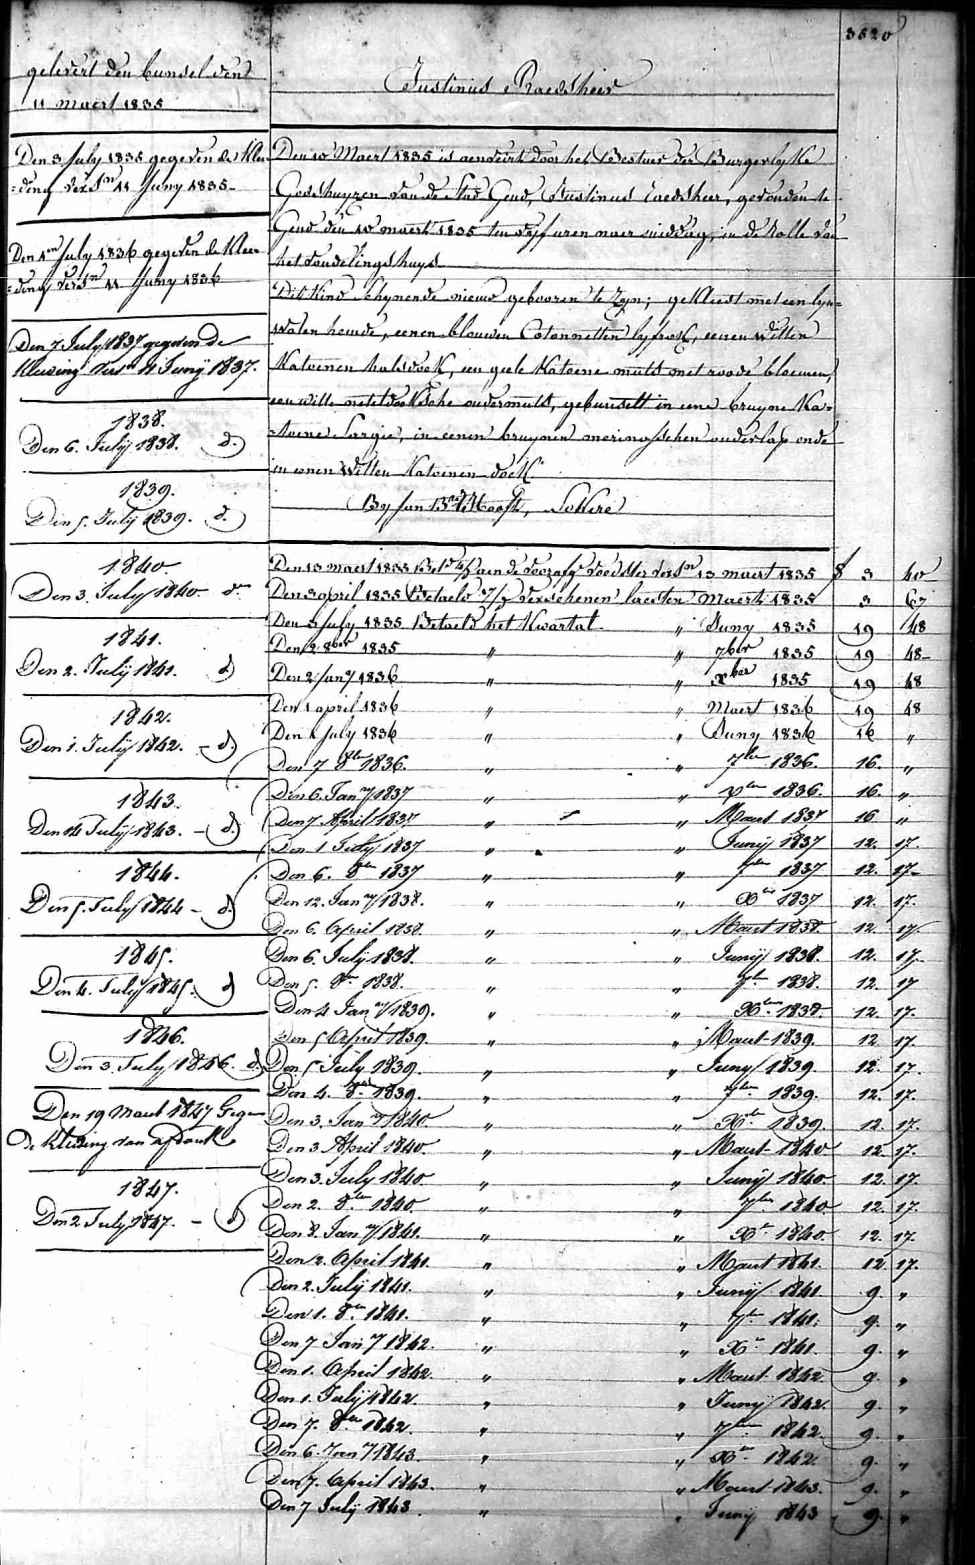 3620
gelevert den bunsel dent
11 maert 1835
Den 3 July 1835 gegeven de Klee
=ding versn 11 Juny 1835-
Den 1en July 1836 gegeven de Kleen
=ding versn 11 Juny 1836
Den 7 July 1837 gegeven de
Kleeding versn 11 Junÿ 1837.
1838.
Den 6. July 1838. d.
1839.
Den 5. July 1839. d.
1840.
Den 3. July 1840. do
1841.
Den 2. Julÿ 1841. d)
1842.
Den 1. Julÿ 1842. - d)
1843.
Den 14 Julÿ 1843. - d.)
1844.
Den 5. July 1844 - d.
1845.
Den 4. July 1845. d)
1846.
Den 3. July 1846. d.
Den 19 Maart 1847 Gege
de kleeding van afdank
1847.
Den 2 July 1847. - d)
Justinus Raedsheer
Den 10 Maert 1835 is aenveirt door het Bestuer der Burgerlyke
Godshuyzen van de Stad Gend, Justinus raedsheer, gevonden te
Gend den 10 maert 1835 ten vyf uren naer middag, in de Rolle van
het vondelingshuys
Dit kind schynende nieuw gebooren te zyn; gekleed met een lyn=
waten hemde, eenen blouwen Cotonnetten lyfrok, eenen witten
Katoenen halsdoek, een geele Katoene muts met roode bloemen,
een witte neteldoeksche ondermuts, gebunselt in eene bruyne Ka=
=toene Sargie, in eenen bruynen merinosschen onderlap ende
in eenen witten Katoenen doek.
By Jan Bte D'Hooge, Lokere
Den 13 maert 1835 Betd aen de voorafge voedster versn 13 maert 1835 f 3 40
Den 3 april 1835 Betaeld verschenen laesten Maert 1835 3 67
Den 3 july 1835 Betaeld het Kwartal " Juny 1835 19 48
Den 2 8ber 1835 " " 7ber 1835 19 48-
Den 2 Jany 1836 " " xber 1835 19 48
Den 1 april 1836 " " Maert 1836 19 48
Den 1 july 1836 " " Juny 1836 16 "
Den 7 8ber 1836. " " 7ber 1836. 16. "
Den 6. Jany 1837 " " xber 1836. 16. "
Den 7 April 1837 " " Maert 1837 16 "
Den 1 July 1837 " " Junÿ 1837 12. 17.
Den 6. 8ber 1837 " " 7ber 1837 12. 17.-
Den 12. Jany 1838. " " Xber 1837 12. 17.
Den 6. April 1838. " " Maert 1838. 12. 17
Den 6. July 1838. " " Junÿ 1838. 12. 17.
Den 5. 8ber 1838. " " 7ber 1838. 12. 17
Den 4 Jany 1839. " " Xber 1838 12. 17.
Den 5 April 1839. " " Maert 1839. 12 17.
Den 5 July 1839. " " Juny 1839. 12. 17.
Den 4. 8ber 1839. " " 7ber 1839. 12. 17.
Den 3. Jany 1840. " " Xber 1839. 12. 17.
Den 3 April 1840. " " Maert 1840 12. 17.
Den 3. July 1840. " " Junÿ 1840. 12. 17.
Den 2. 8ber 1840. " " 7ber 1840 12. 17.
Den 8. Jany 1841. " " Xr 1840. 12. 17.
Den 2. April 1841. " " Maert 1841. 12 17.
Den 2. Julÿ 1841. " " Junÿ 1841 9. "
Den 1. 8ber 1841. " " 7ber 1841. 9. "
Den 7 Jany 1842. " " Xr 1841. 9. "
Den 1. April 1842. " " Maert 1842 9. "
Den 1. Julÿ 1842. " " Juny 1842. 9. "
Den 7. 8ber 1842. " " 7ber 1842. 9. "
Den 6. Jany 1843. " " Xr 1842. 9. "
Den 7. April 1843. " " Maert 1843. 9. "
Den 7 Julÿ 1843. " " Junÿ 1843 9. "